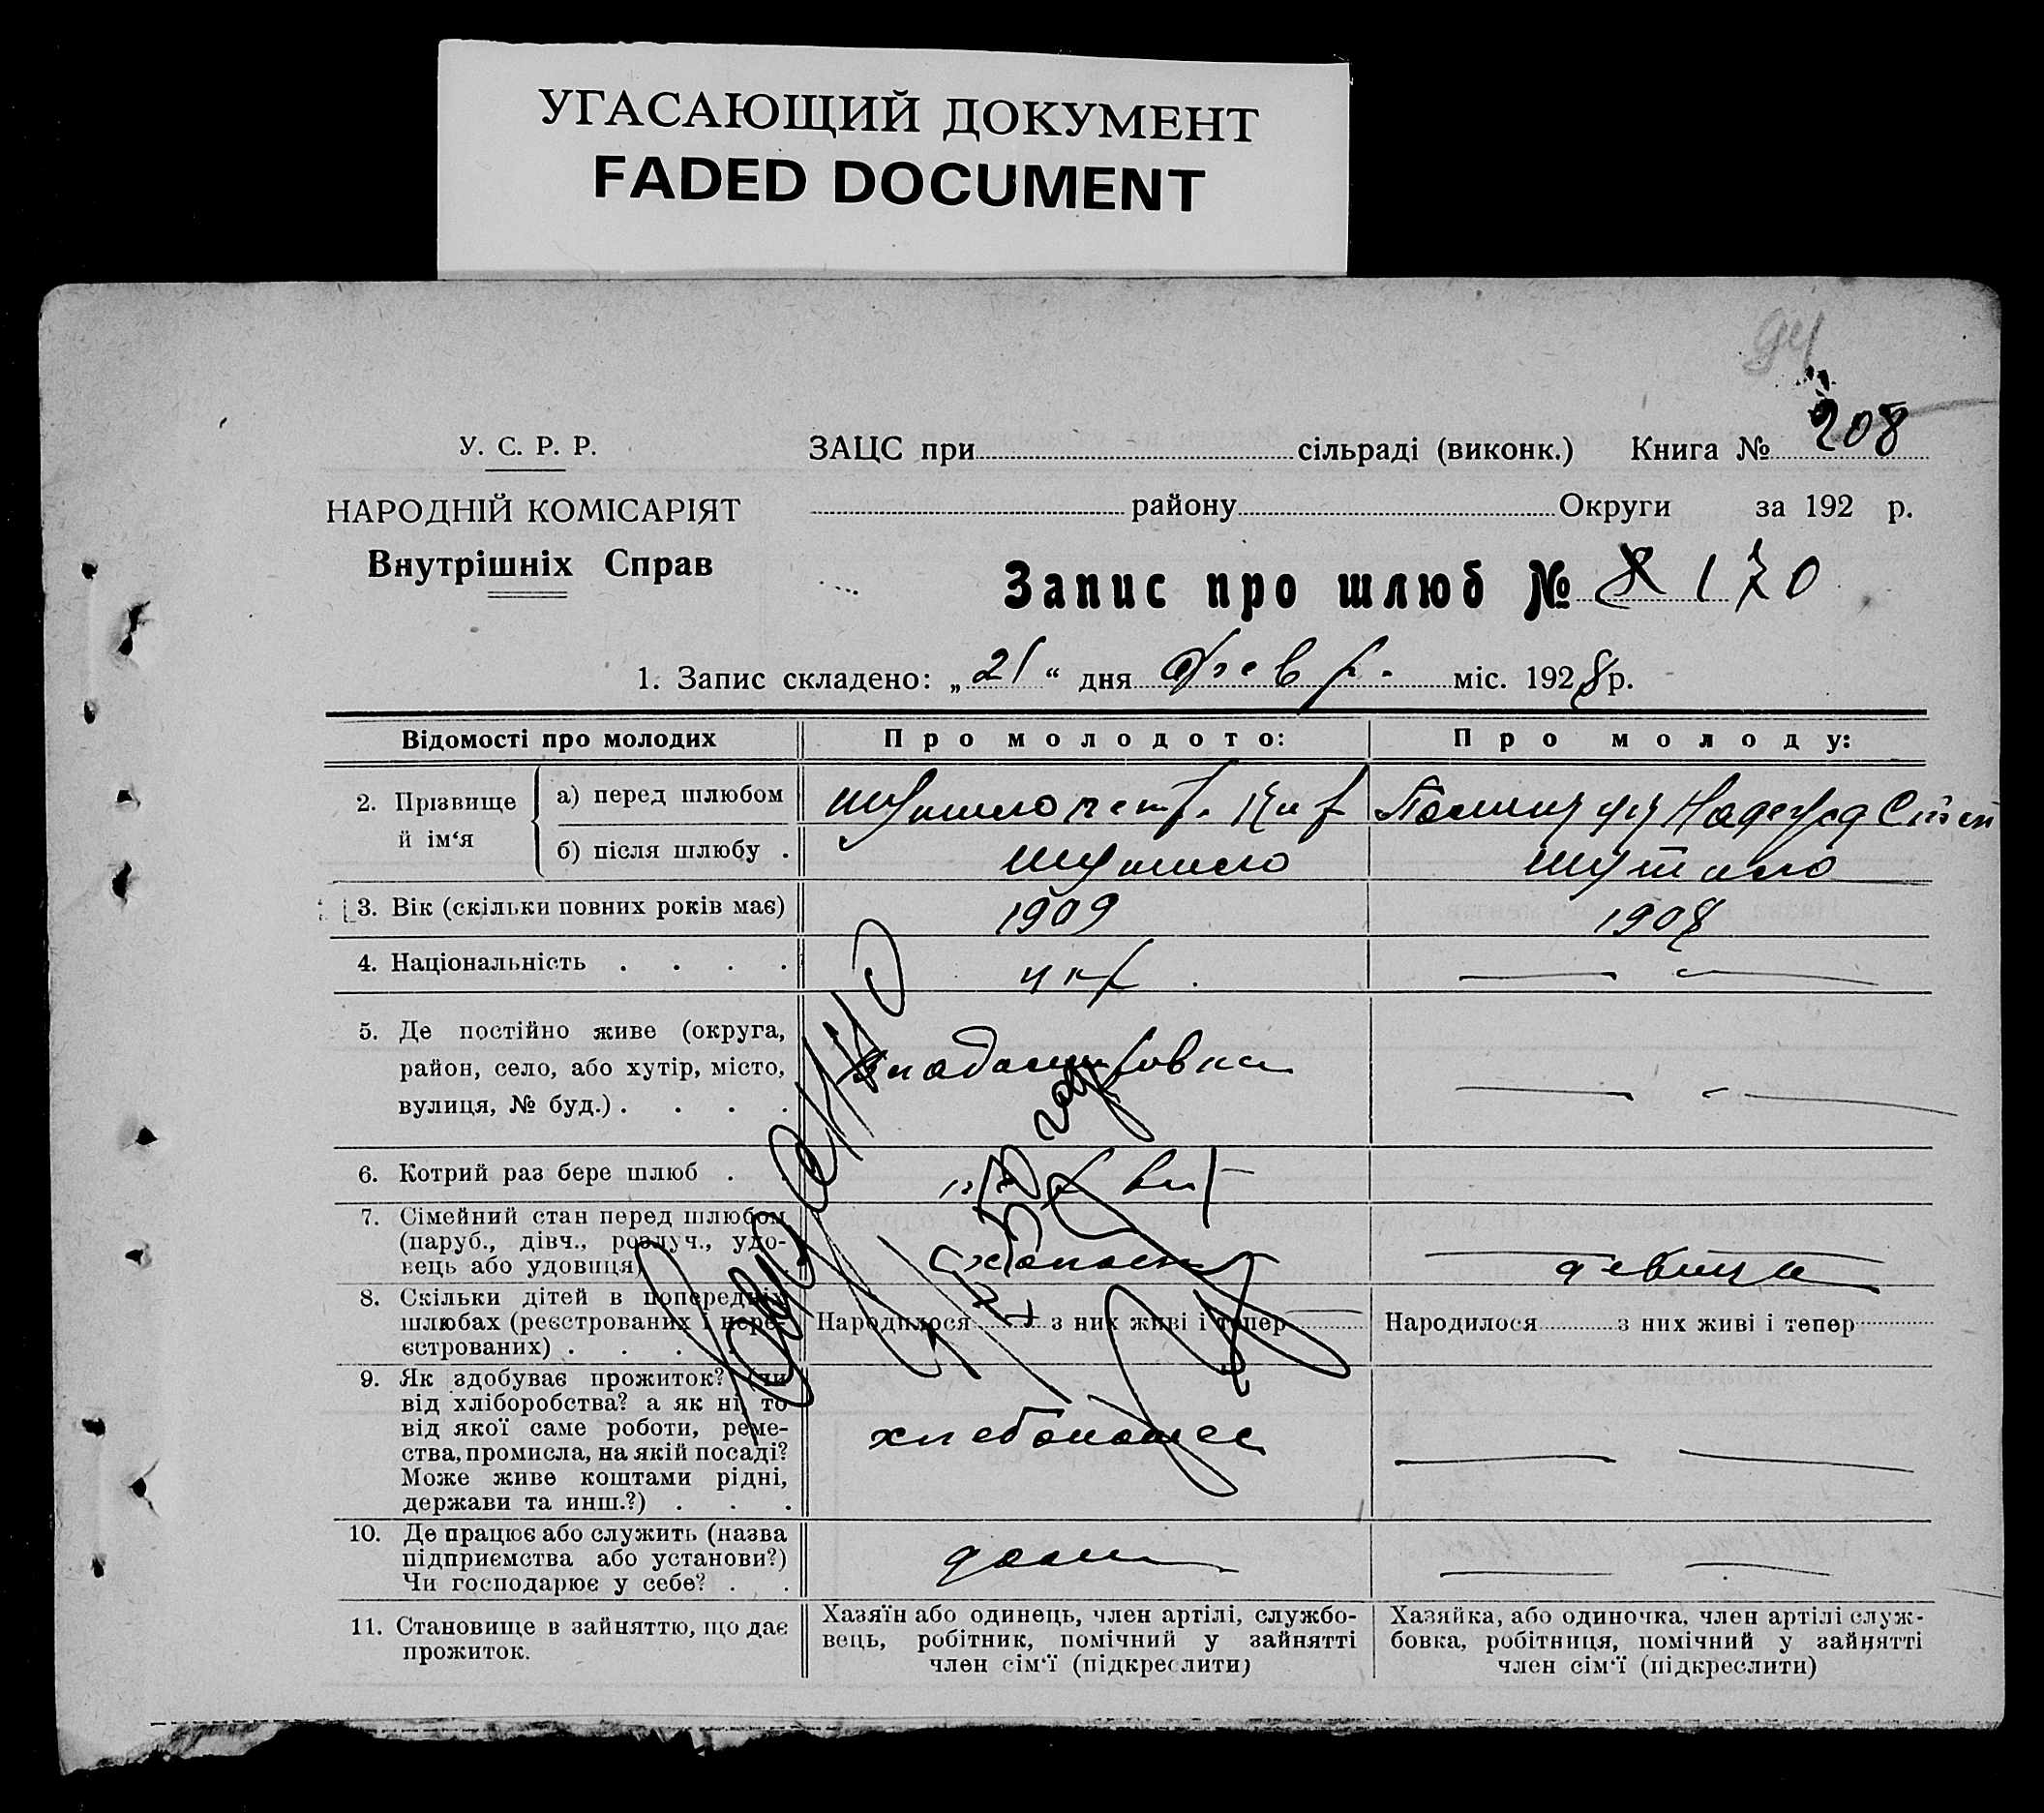 УГАСАЮЩИЙ ДОКУМЕНТ
FADED DOCUMENT
94
У. С. Р. Р.
ЗАЦС при сільраді (виконк.) Книга № 208
НАРОДНІЙ КОМІСАРІЯТ
району Округи за 192 р.
Внутрішніх Справ
Запис про шлюб № 8 170
1. Запис складено: „21“ дня Февр. міс. 1928 р.
Відомості про молодих
Про молодого:
Про молоду:
2. Прізвище й ім‘я
а) перед шлюбом
б) після шлюбу .
Шутило
Шутило
3. Вік (скільки повних років має)
1909
1908
4. Національність . . . .
укр
5. Де постійно живе (округа, 
район, село, або хутір, місто,
вулиця, № буд.) . . . .
6. Котрий раз бере шлюб . .
7. Сімейний стан перед шлюбом
(паруб., дівч., розлуч., удо-
вець або удовиця)
девица
8. Скільки дітей в попередніх
шлюбах (реєстрованих і нере-
єстрованих) . . . .
Народилося з них живі і тепер
Народилося з них живі і тепер
9. Як здобуває прожиток? (чи
від хліборобства? а як ні, то
від якої саме роботи, реме-
ства, промисла, на якій посаді?
Може живе коштами рідні,
держави та инш.?) . . .
хлебопашес
10. Де працює або служить (назва
підприємства або установи?)
Чи господарює у себе? . .
дома
11. Становище в зайняттю, що дає
прожиток.
Хазяїн або одинець, член артілі, службо-
вець, робітник, помічний у зайнятті
член сім‘ї (підкреслити)
Хазяйка, або одиночка, член артілі служ-
бовка, робітниця, помічний у зайнятті
член сім‘ї (підкреслити)